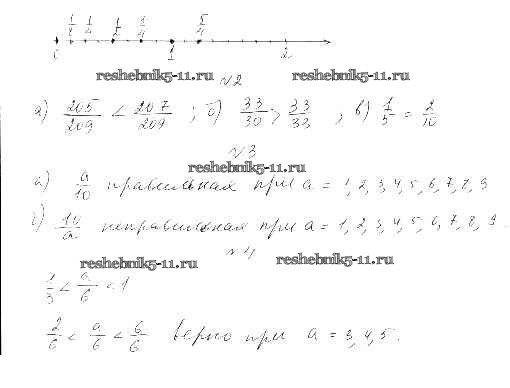 1/8 1/4 1/2 3/4 5/4
0 1 2
reshebnik5-11.ru reshebnik5-11.ru
№2
а) 205/209 < 207/209 ; б) 33/30 > 33/32 ; в) 1/5 = 2/10
№3
reshebnik5-11.ru
а) a/10 правильная при a = 1, 2, 3, 4, 5, 6, 7, 8, 9
б) 10/a неправильная при a = 1, 2, 3, 4, 5, 6, 7, 8, 9.
№4
reshebnik5-11.ru reshebnik5-11.ru
1/3 < a/6 < 1
2/6 < a/6 < 6/6 верно при a = 3, 4, 5.